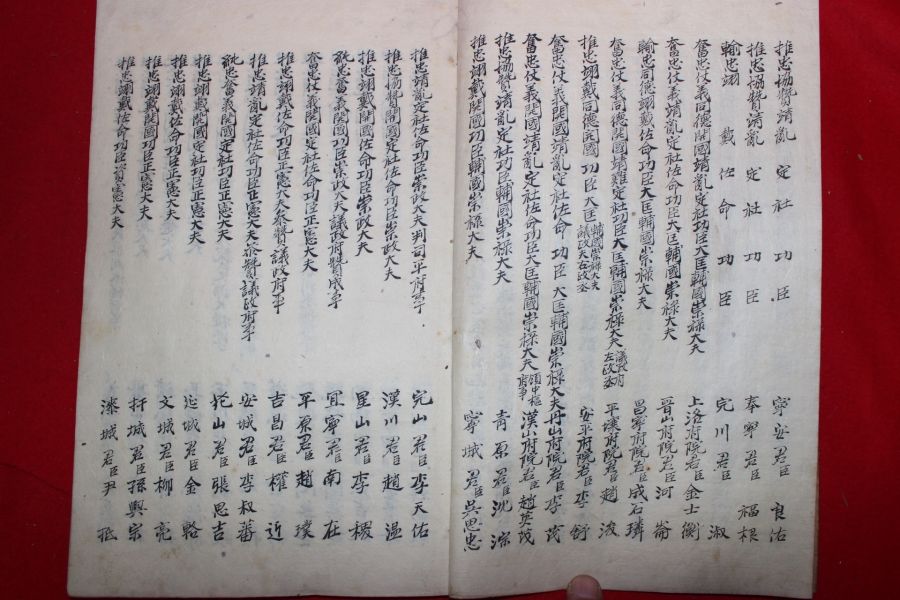 推忠協贊靖亂定社功臣 寧安君臣良佑
推忠協贊靖亂定社功臣 奉寧君臣福根
輸忠翊戴佐命功臣 完川君臣淑
奮忠仗義同德開國靖亂定社功臣大匡輔國崇祿大夫 上洛府院君臣金士衡
奮忠仗義靖亂定社佐命功臣大匡輔國崇祿大夫 晉山府院君臣河崙
輸忠同德翊戴佐命功臣大匡輔國崇祿大夫 昌寧府院君臣成石璘
奮忠仗義同德開國靖難定社功臣大匡輔國崇祿大夫議政府左政丞 平壤府院君臣趙浚
推忠翊戴同德開國功臣大匡輔國崇祿大夫議政府右政丞 安平府院君臣李舒
奮忠仗義開國靖亂定社佐命功臣大匡輔國崇祿大夫 丹山府院君臣李茂
奮忠仗義開國靖亂定社佐命功臣大匡輔國崇祿大夫領中樞府事 漢山府院君臣趙英茂
推忠協贊靖亂定社功臣輔國崇祿大夫 靑原君臣沈淙
推忠翊戴開國功臣輔國崇祿大夫 寧城君臣吳思忠
推忠靖亂定社佐命功臣崇政大夫判司平府事 完山君臣李天佑
推忠協贊開國功臣崇政大夫 漢川君臣趙溫
推忠翊戴開國佐命功臣崇政大夫 星山君臣李稷
忠奮義開國功臣崇政大夫議政府贊成事 宜寧君臣南在
奮忠仗義開國定社佐命功臣正憲大夫 平原君臣趙璞
推忠翊戴佐命功臣正憲大夫叅贊議政府事 吉昌君臣權近
推忠靖亂定社佐命功臣正憲大夫叅贊議政府事 安城君臣李叔蕃
忠奮義開國定社功臣正憲大夫 花山君臣張思吉
推忠翊戴開國定社功臣正憲大夫 延城君臣金輅
推忠翊戴佐命功臣正憲大夫 文城君臣柳亮
推忠翊戴開國功臣正憲大夫 杆城君臣孫興宗
推忠翊戴佐命功臣資憲大夫 漆城君臣尹柢